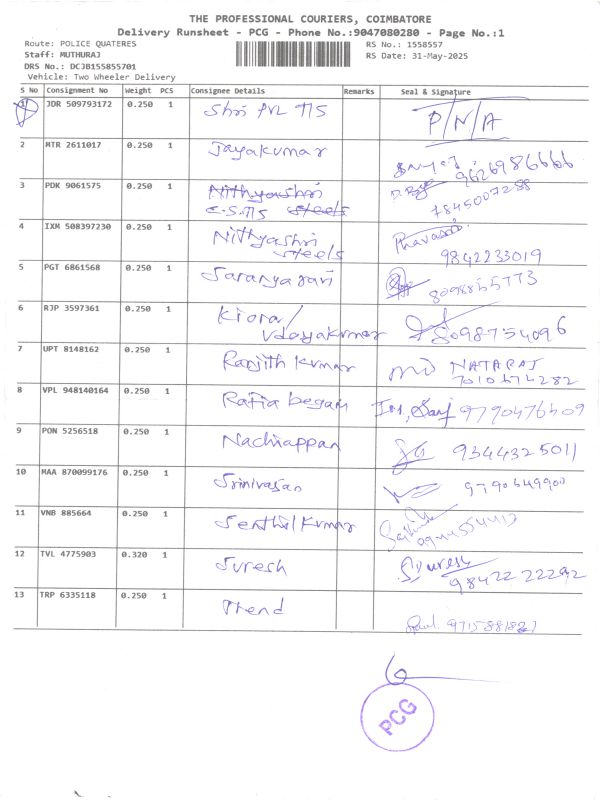 THE PROFESSIONAL COURIERS, COIMBATORE
Delivery Runsheet - PCG - Phone No.:9047080280 - Page No.:1
Route: POLICE QUATERES
RS No.: 1558557
Staff: MUTHURAJ
RS Date: 31-May-2025
DRS No.: DCJB155855701
Vehicle: Two Wheeler Delivery
S No Consignment No Weight PCS Consignee Details Remarks Seal & Signature
1 JDR 509793172 0.250 1 Shri P/N/A
2 MTR 2611017 0.250 1 Jayakumar 9626986666
3 PDK 9061575 0.250 1 Nithyashri
E.S.TIS steels 7845007288
4 IXM 508397230 0.250 1 Nithyashri
steels 9842233019
5 PGT 6861568 0.250 1 Saranya 8098855773
6 RJP 3597361 0.250 1 Kiora/
Udayakumar 8098754096
7 UPT 8148162 0.250 1 Ranjith Kumar NATARAJ
7010674282
8 VPL 948140164 0.250 1 Rafia begam 9790476409
9 PON 5256518 0.250 1 Nachiappan 9344325011
10 MAA 870099176 0.250 1 Srinivasan
11 VNB 885664 0.250 1 Senthil Kumar
12 TVL 4775903 0.320 1 Suresh Suresh
98422 22292
13 TRP 6335118 0.250 1 Trend
PCG